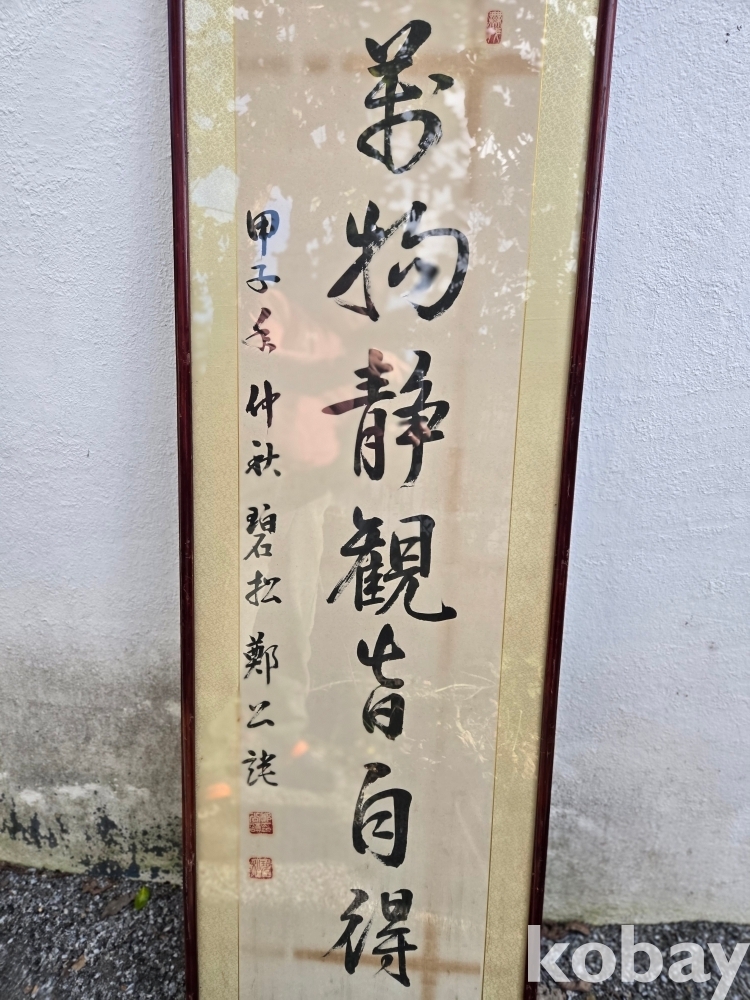 萬物静観皆自得
甲子年仲秋 碧松 鄭公
kobay